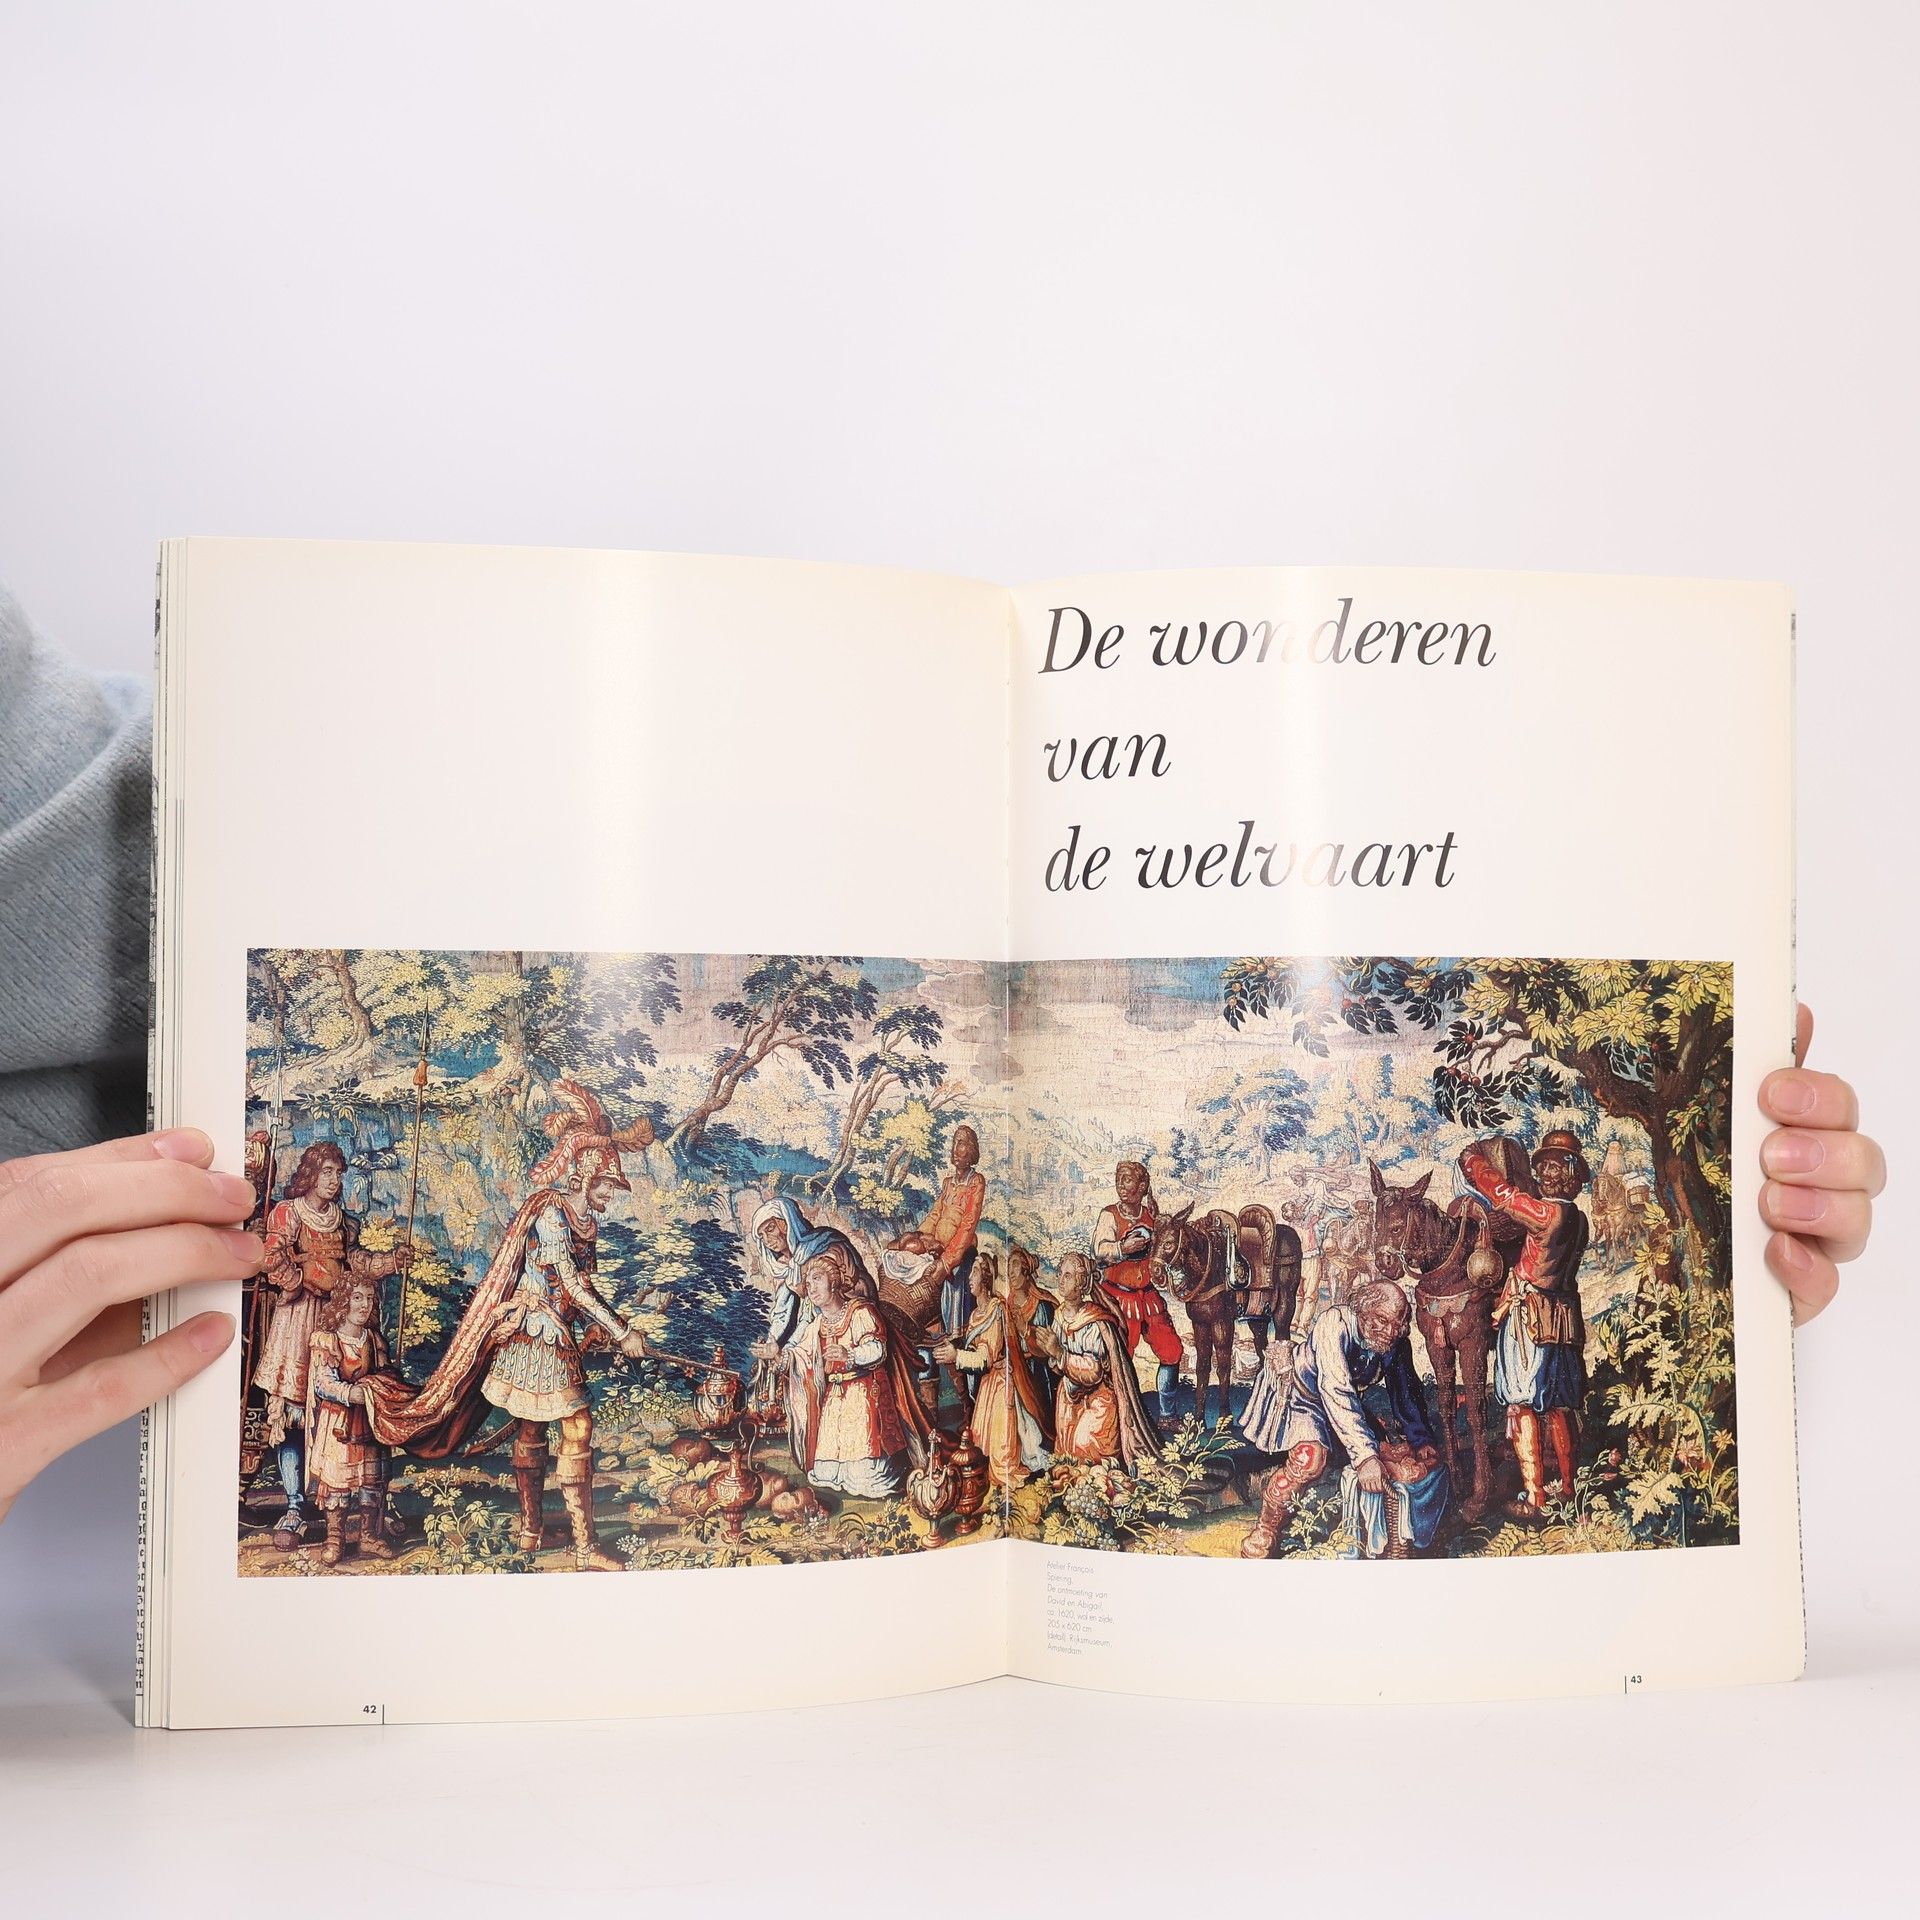 De wonderen
van
de welvaart
Atelier François
Spiering,
De ontmoeting van
David en Abigail,
ca. 1620, wol en zijde,
205 x 620 cm
(detail). Rijksmuseum,
Amsterdam
42
43